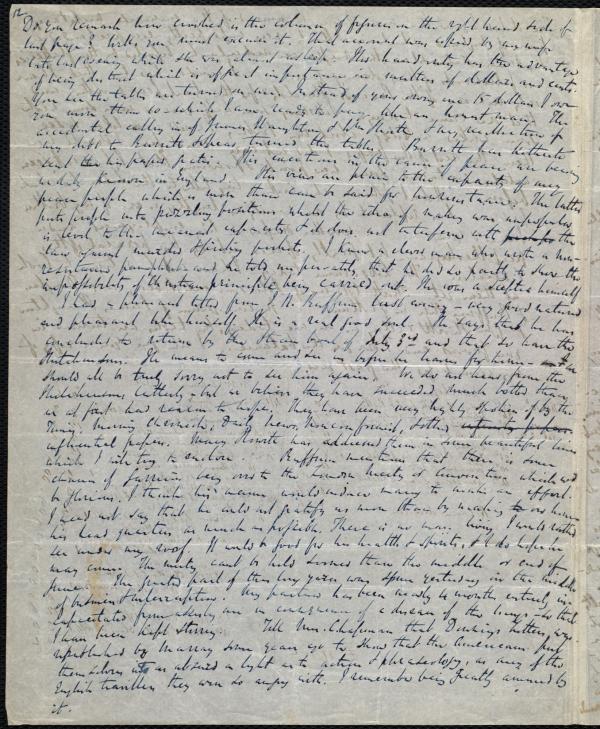 12
Do you remark how crooked is the column of figures on the right hand side of
last page? Well, you must excuse it. That account was copied by my wife
late last evening while she was almost asleep. Her handwriting has the advantage
of being distinct which is of great importance in matters of dollars and cents.
You see the tables are turned on me. Instead of your owing me 15 dollars I owe
you more than 20 – which I am ready to pay like an honest man. The
accidental calling in of James Haughton & Wm Smith & my recollection of
my debt to Burritt & Speas, turned the tables. Burritt has hitherto
sent me his papers gratis. His exertions in the cause of peace are being
widely known in England. His views are plain to the capacity of many
peace people which is more than can be said for nonresistance. The latter
puts people into puzzling positions whilst the idea of making war unpopular
is level to the meanest capacity & it does not interfere with the
law against murder & picking pockets. I know a clever man who wrote a non-
resistance pamphlet and he told me privately that he did so partly to show the
impossibility of Christian principles being carried out. He was a sceptic himself.
I had a pleasant letter from J. N. Buffum last evening – very good natured
and pleasant like himself. He is a real good soul. He says that he has
concluded to return by the Steam boat of July 3rd and that so have the
Hutchinsons. He means to come and see us before he leaves for home – we
should all be truly sorry not to see him again. We do not hear from the
Hutchinsons latterly – but we believe they have succeeded much better than
we at first had reason to hope. They have been very highly spoken of by the
Times, Morning Chronicle, Daily News, Nonconformist, & other
influential papers. Mary Howitt has addressed them in some beautiful lines
which I intend to enclose. Buffum mentions that there is some
chance of Garrison being over to the London Meeting of Convention which would
be glorious. I think his name would induce many to make an effort.
I need not say that he could not gratify us more than by making our house
his head quarters as much as possible. There is no man living I would rather
see under my roof. It would be good for his health & spirits, & I do hope he
may come. The meeting can't be held sooner than the middle or end of
June. The greater part of this long yarn was spun yesterday in the middle
of business & interruption. My partner has been nearly 4 months entirely in-
capacitated from activity and in consequence of a disease of the lungs – so that
I have been kept stirring. Tell Mrs. Chapman that Downing's Letters, was
republished by Murray some years ago to show that the Americans put
themselves in as absurd a light as to action & phraseology, as any of the
English travellers they were so angry with. I remember being greatly amused by
it.